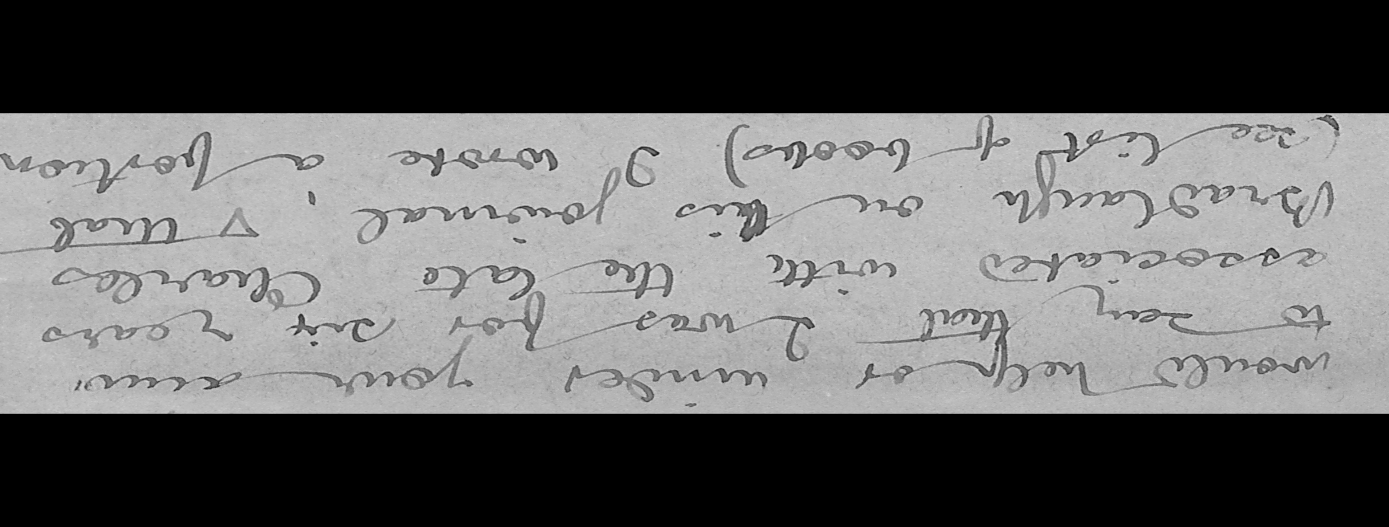 would help or hinder your aim,
to say that I was for six years
associated with the late Charles
Bradlaugh on his journal, & that
(see list of books) I wrote a portion